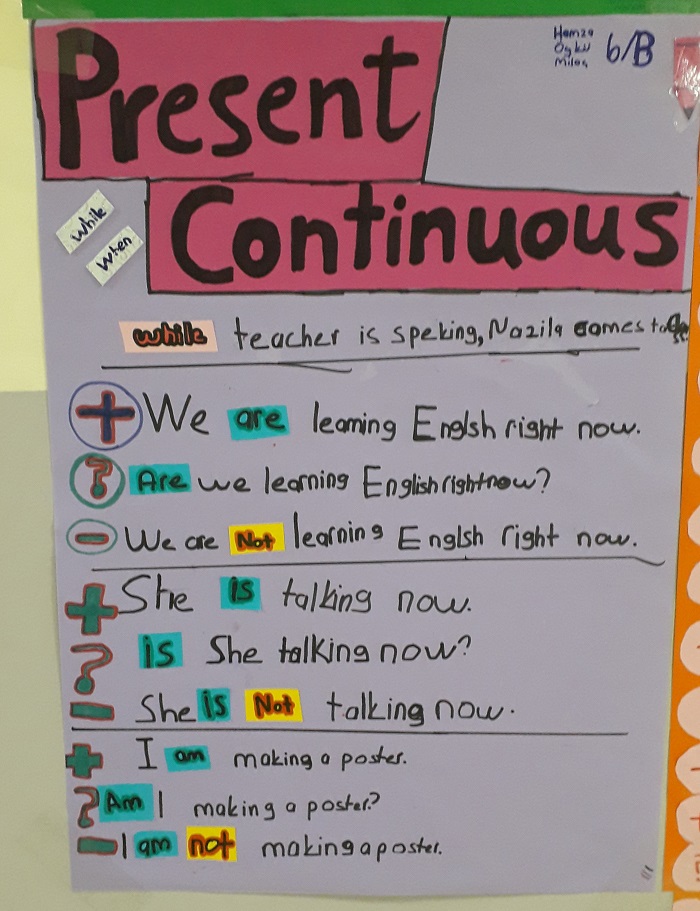 Hamza
Ogku
Milos
6/B
Present
while
when
Continuous
while teacher is speking, Nazila comes to
+ We are learning Englsh right now.
? Are we learning English right now?
- We are Not learning Englsh right now.
+ She is talking now.
? is She talking now?
- She is Not talking now.
+ I am making a poster.
? Am I making a poster?
- I am not making a poster.